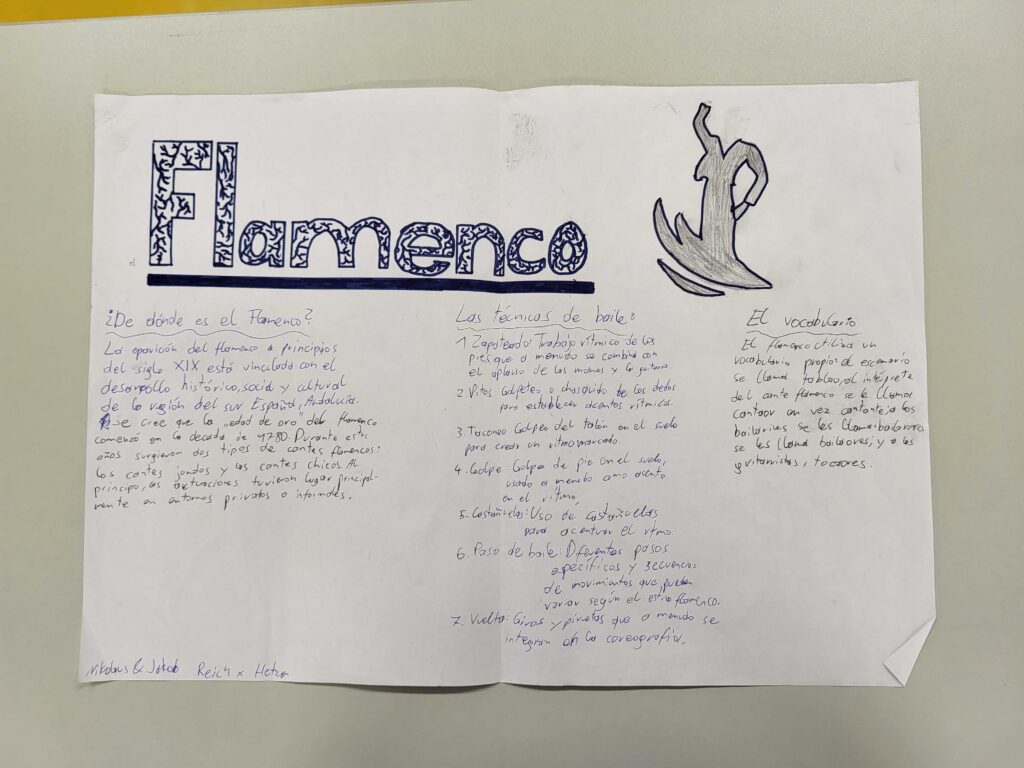 Flamenco
¿De dónde es el Flamenco?
La aparición del flamenco a principios
del siglo XIX está vinculada con el
desarrollo histórico, social y cultural
de la región del sur España, Andalucía.
Se cree que la „edad de oro" del flamenco
comenzó en la década de 1780. Durante estos
años surgieron dos tipos de cantes flamencos:
los cantes jondos y los cantes chicos. Al
principo, las actuaciones tuvieron lugar principal-
mente en entornos privados o informales.
Las técnicas de baile:
1. Zapateado: Trabajo rítmico de los
pies que a menudo se combina con
el aplauso de las manos y la guitarra.
2. Pitos Golpeteo o chasquido de los dedos
para establecer acentos rítmicos.
3. Taconeo Golpeo del talón en el suelo
para crear un ritmo marcado
4. Golpe Golpe de pie en el suelo,
usado a menudo como acento
en el ritmo.
5. Castañuelas: Uso de castañuelas
para acentuar el ritmo.
6. Paso de baile: Diferentes pasos
específicos y secuencias
de movimientos que pueden
variar según el estilo flamenco.
7. Vuelta: Giros y piruetas que a menudo se
integran en la coreografía.
El vocabulario
El flamenco utiliza un
vocabulario propio: el escenario
se llama tablao, al intérprete
del cante flamenco se le llama
cantaor en vez cantante; a los
bailarines se les llama bailaores
se les llama bailaores, y a los
guitarristas, tocaores.
Nikolaus & Jakob Reich x